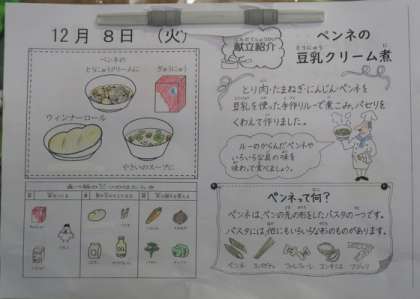 12月 8日 (火)
ペンネの
とうにゅうクリームに
ぎゅうにゅう
ウィンナーロール
やさいのスープに
献立紹介
ペンネの
豆乳クリーム煮
とり肉・たまねぎ・にんじん・ペンネを
豆乳を使った手作りルーで煮こみ、パセリを
くわえて作りました。
ルーのからんだペンネや
いろいろな具の味を
味わって食べましょう。
ペンネって何?
ペンネは、ペンの先の形をしたパスタの一つです。
パスタには、他にもいろいろな形のものがあります。
ペンネ
スパゲティ
ファルファーレ
コンキリエ
フジッリ